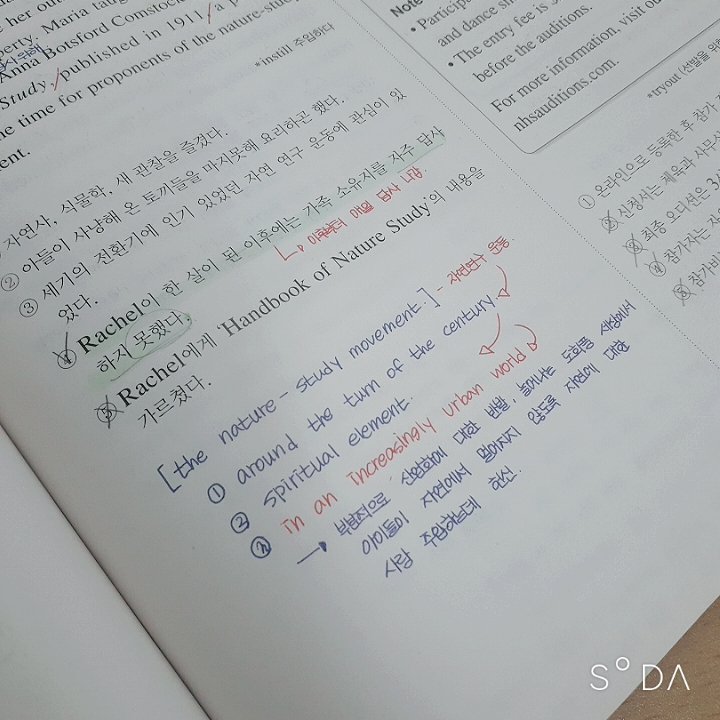 her ou
perty. Maria taug
Anna Botsford Comstock
Study, published in 1911, a p
the time for proponents of the nature-study
ent.
*instill 주입하다
자연사, 식물학, 새 관찰을 즐겼다.
② 아들이 사냥해 온 토끼들을 마지못해 요리하곤 했다.
③ 세기의 전환기에 인기 있었던 자연 연구 운동에 관심이 있
었다.
④ Rachel이 한 살이 된 이후에는 가족 소유지를 자주 답사
하지 못했다.
↳ 이후부터 매일 답사 나감
⑤ Rachel에게 'Handbook of Nature Study'의 내용을
가르쳤다.
[the nature-study movement.] - 자연연구 운동
① around the turn of the century.
② spiritual element.
③ in an increasingly urban world
→ 부분적으로 산업화에 대한 반발, 늘어나는 도회풍 세상에서
아이들이 자연에서 멀어지지 않도록 자연에 대한
사랑 주입하는데 헌신.
Note
• Participa
and dance sh
• The entry fee is
before the auditions.
For more information, visit our
nhsauditions.com.
*tryout (선발을 위한
① 온라인으로 등록한 후 참가
② 신청서는 체육과 사무
③ 최종 오디션은 3
④ 참가자는 자
⑤ 참가비
S°DA